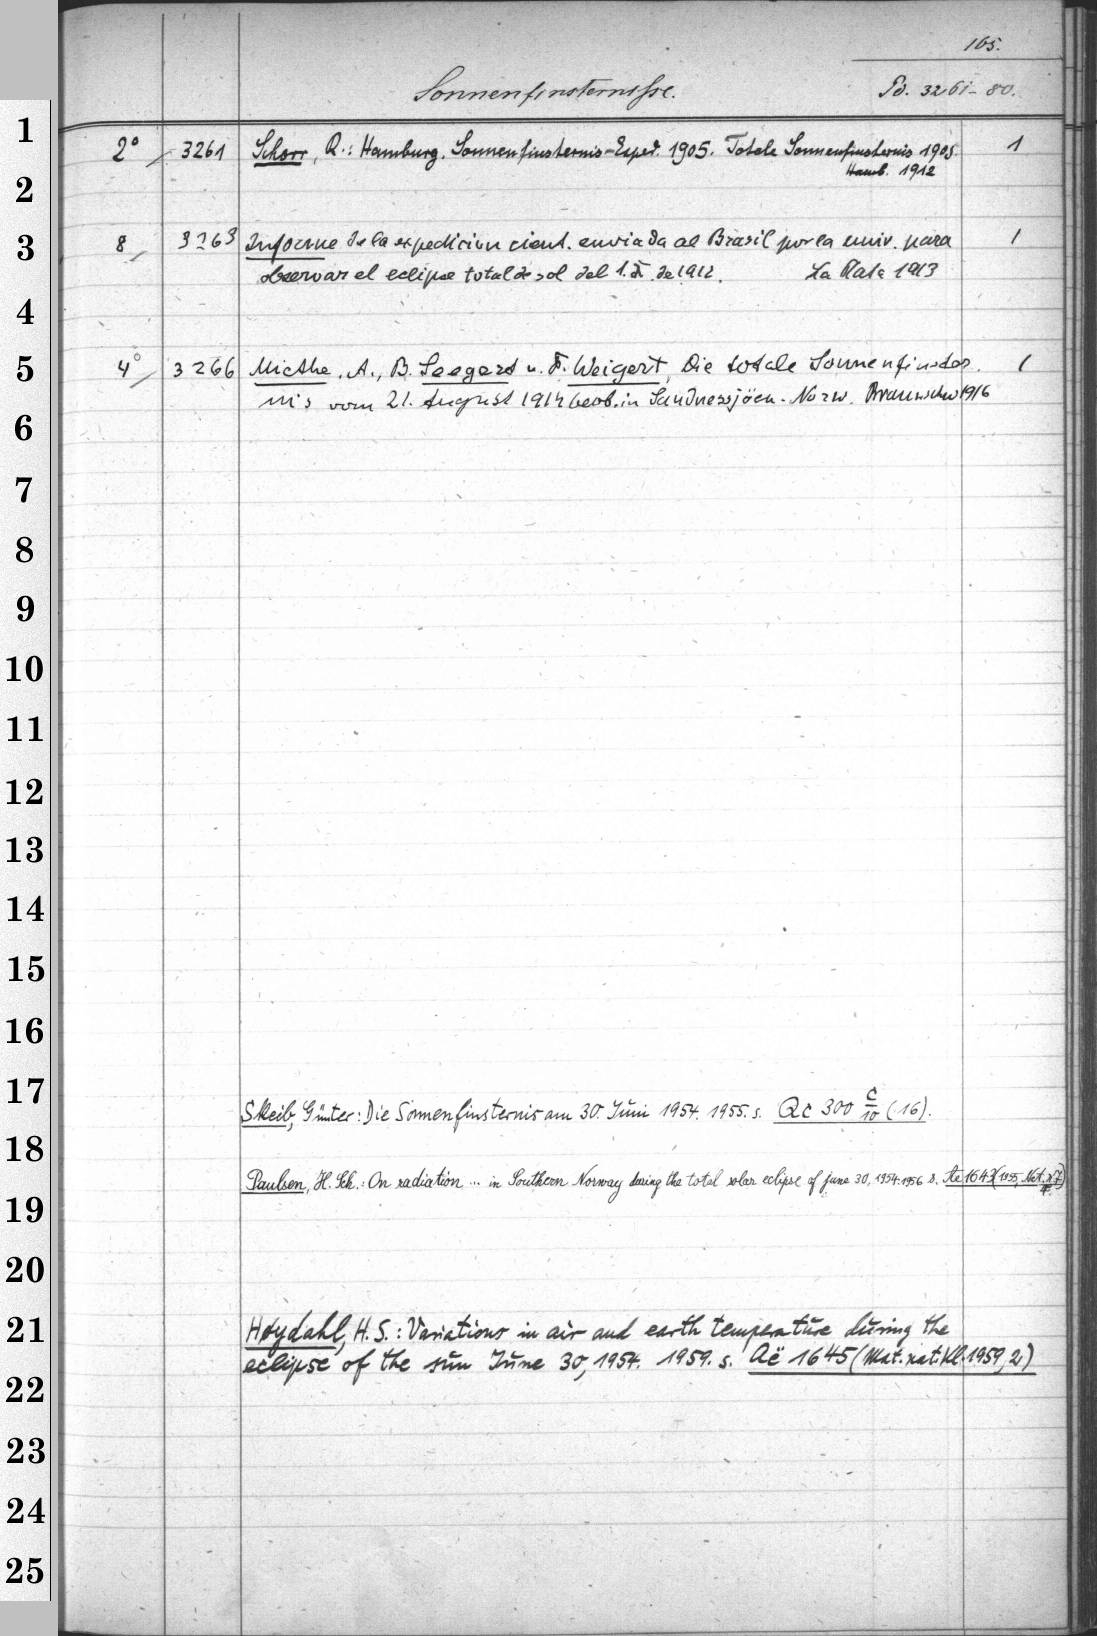 165.
Sonnenfinsternisse.
Po. 3261-80.
1
2
3
4
5
6
7
8
9
10
11
12
13
14
15
16
17
18
19
20
21
22
23
24
25
2° 3261 Schorr, R.: Hamburg. Sonnenfinsternis-Exped. 1905. Totale Sonnenfinsternis 1905. 1
Hamb. 1912
8 3263 Informe de la expedicion cient. enviada al Brasil por la univ. para 1
observar el eclipse total de sol del 1. X. de 1912. La Plata 1913
4° 3266 Miethe, A., B. Seegert u. F. Weigert, Die totale Sonnenfinster 1
nis vom 21. August 1914 beob. in Sandnessjöen. Norw. Braunschw 1916
Skeib, Günter: Die Sonnenfinsternis am 30. Juni 1954. 1955. s. Qc 300 C/10 (16).
Paulsen, H. Sch.: On radiation ... in Southern Norway during the total solar eclipse of june 30, 1954. 1956 s. Ae 1643 (1955,
Høydahl, H. S.: Variations in air and earth temperature during the
eclipse of the sun June 30, 1954. 1959. s. Aë 1645 (Mat. nat. Kl. 1959, 2)